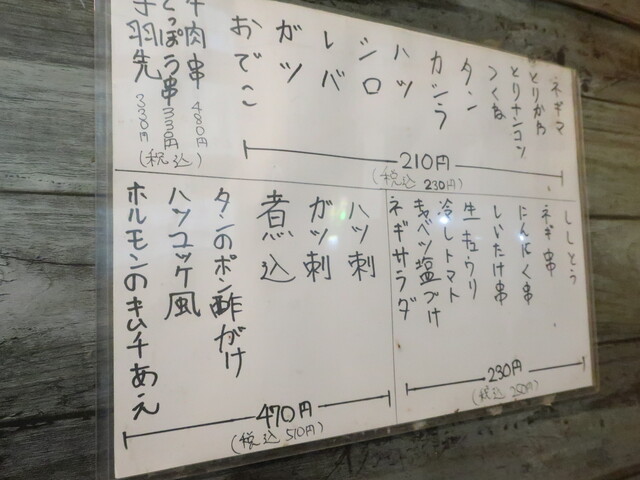 ネギマ
とりかわ
とりナンコツ
つくね
タン
カシラ
ハツ
シロ
レバ
ガツ
おでこ
210円
(税込 230円)
牛肉串 480円
てっぽう串 330円
手羽先 330円
(税込)
ししとう
ネギ串
にんにく串
しいたけ串
生キュウリ
冷しトマト
キャベツ塩づけ
ネギサラダ
230円
(税込 250円)
ハツ刺
ガツ刺
煮込
タンのポン酢がけ
ハツユッケ風
ホルモンのキムチあえ
470円
(税込 510円)